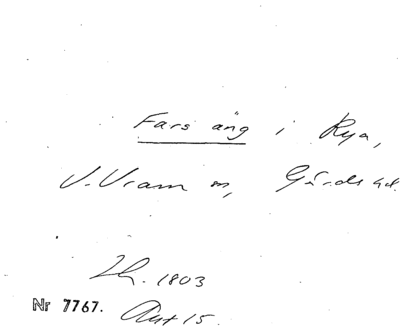 Fars äng i Rya,
V. Vram sn, Gärds hd.
Lh. 1803
Nr 7767. Akt 15.